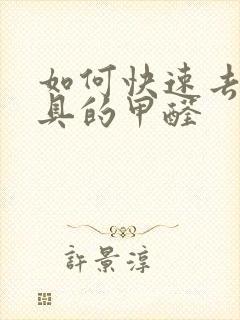 如何快速去
具的甲醛
許景淳